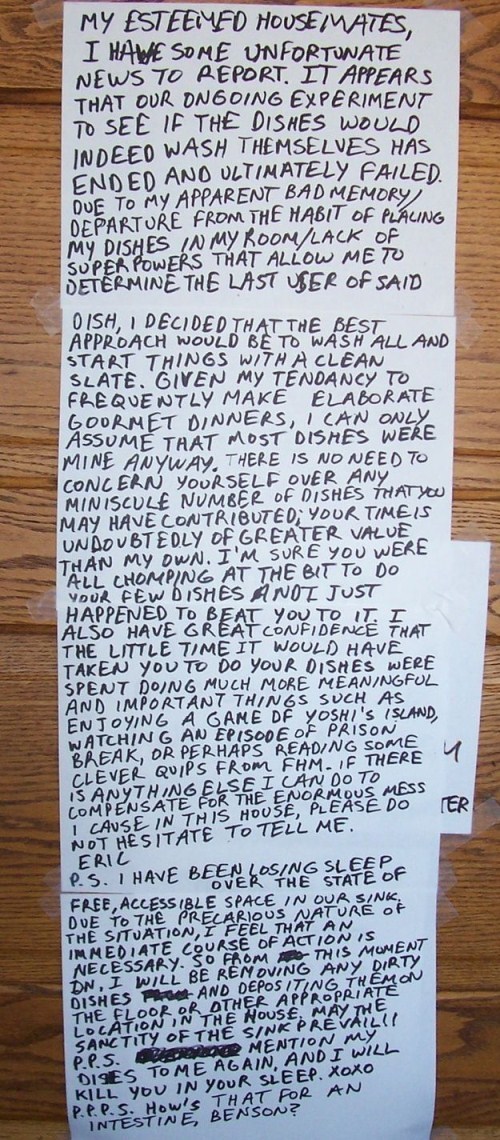 MY ESTEEMED HOUSEMATES,
I HAVE SOME UNFORTUNATE
NEWS TO REPORT. IT APPEARS
THAT OUR ONGOING EXPERIMENT
TO SEE IF THE DISHES WOULD
INDEED WASH THEMSELVES HAS
ENDED AND ULTIMATELY FAILED.
DUE TO MY APPARENT BAD MEMORY/
DEPARTURE FROM THE HABIT OF PLACING
MY DISHES IN MY ROOM/LACK OF
SUPER POWERS THAT ALLOW ME TO
DETERMINE THE LAST USER OF SAID
DISH, I DECIDED THAT THE BEST
APPROACH WOULD BE TO WASH ALL AND
START THINGS WITH A CLEAN
SLATE. GIVEN MY TENDANCY TO
FREQUENTLY MAKE ELABORATE
GOURMET DINNERS, I CAN ONLY
ASSUME THAT MOST DISHES WERE
MINE ANYWAY. THERE IS NO NEED TO
CONCERN YOURSELF OVER ANY
MINISCULE NUMBER OF DISHES THAT YOU
MAY HAVE CONTRIBUTED; YOUR TIME IS
UNDOUBTEDLY OF GREATER VALUE
THAN MY OWN. I'M SURE YOU WERE
ALL CHOMPING AT THE BIT TO DO
YOUR FEW DISHES AND I JUST
HAPPENED TO BEAT YOU TO IT. I
ALSO HAVE GREAT CONFIDENCE THAT
THE LITTLE TIME IT WOULD HAVE
TAKEN YOU TO DO YOUR DISHES WERE
SPENT DOING MUCH MORE MEANINGFUL
AND IMPORTANT THINGS SUCH AS
ENJOYING A GAME OF YOSHI'S ISLAND,
WATCHING AN EPISODE OF PRISON
BREAK, OR PERHAPS READING SOME
CLEVER QUIPS FROM FHM. IF THERE
IS ANYTHING ELSE I CAN DO TO
COMPENSATE FOR THE ENORMOUS MESS
I CAUSE IN THIS HOUSE, PLEASE DO
NOT HESITATE TO TELL ME.
ERIC
P.S. I HAVE BEEN LOSING SLEEP
OVER THE STATE OF
FREE, ACCESSIBLE SPACE IN OUR SINK.
DUE TO THE PRECARIOUS NATURE OF
THE SITUATION, I FEEL THAT AN
IMMEDIATE COURSE OF ACTION IS
NECESSARY. SO FROM THIS MOMENT
ON, I WILL BE REMOVING ANY DIRTY
DISHES AND DEPOSITING THEM ON
THE FLOOR OR OTHER APPROPRIATE
LOCATION IN THE HOUSE. MAY THE
SANCTITY OF THE SINK PREVAIL!!
P.P.S. MENTION MY
DISES TO ME AGAIN, AND I WILL
KILL YOU IN YOUR SLEEP. XOXO
P.P.P.S. HOW'S THAT FOR AN
INTESTINE, BENSON?
TER